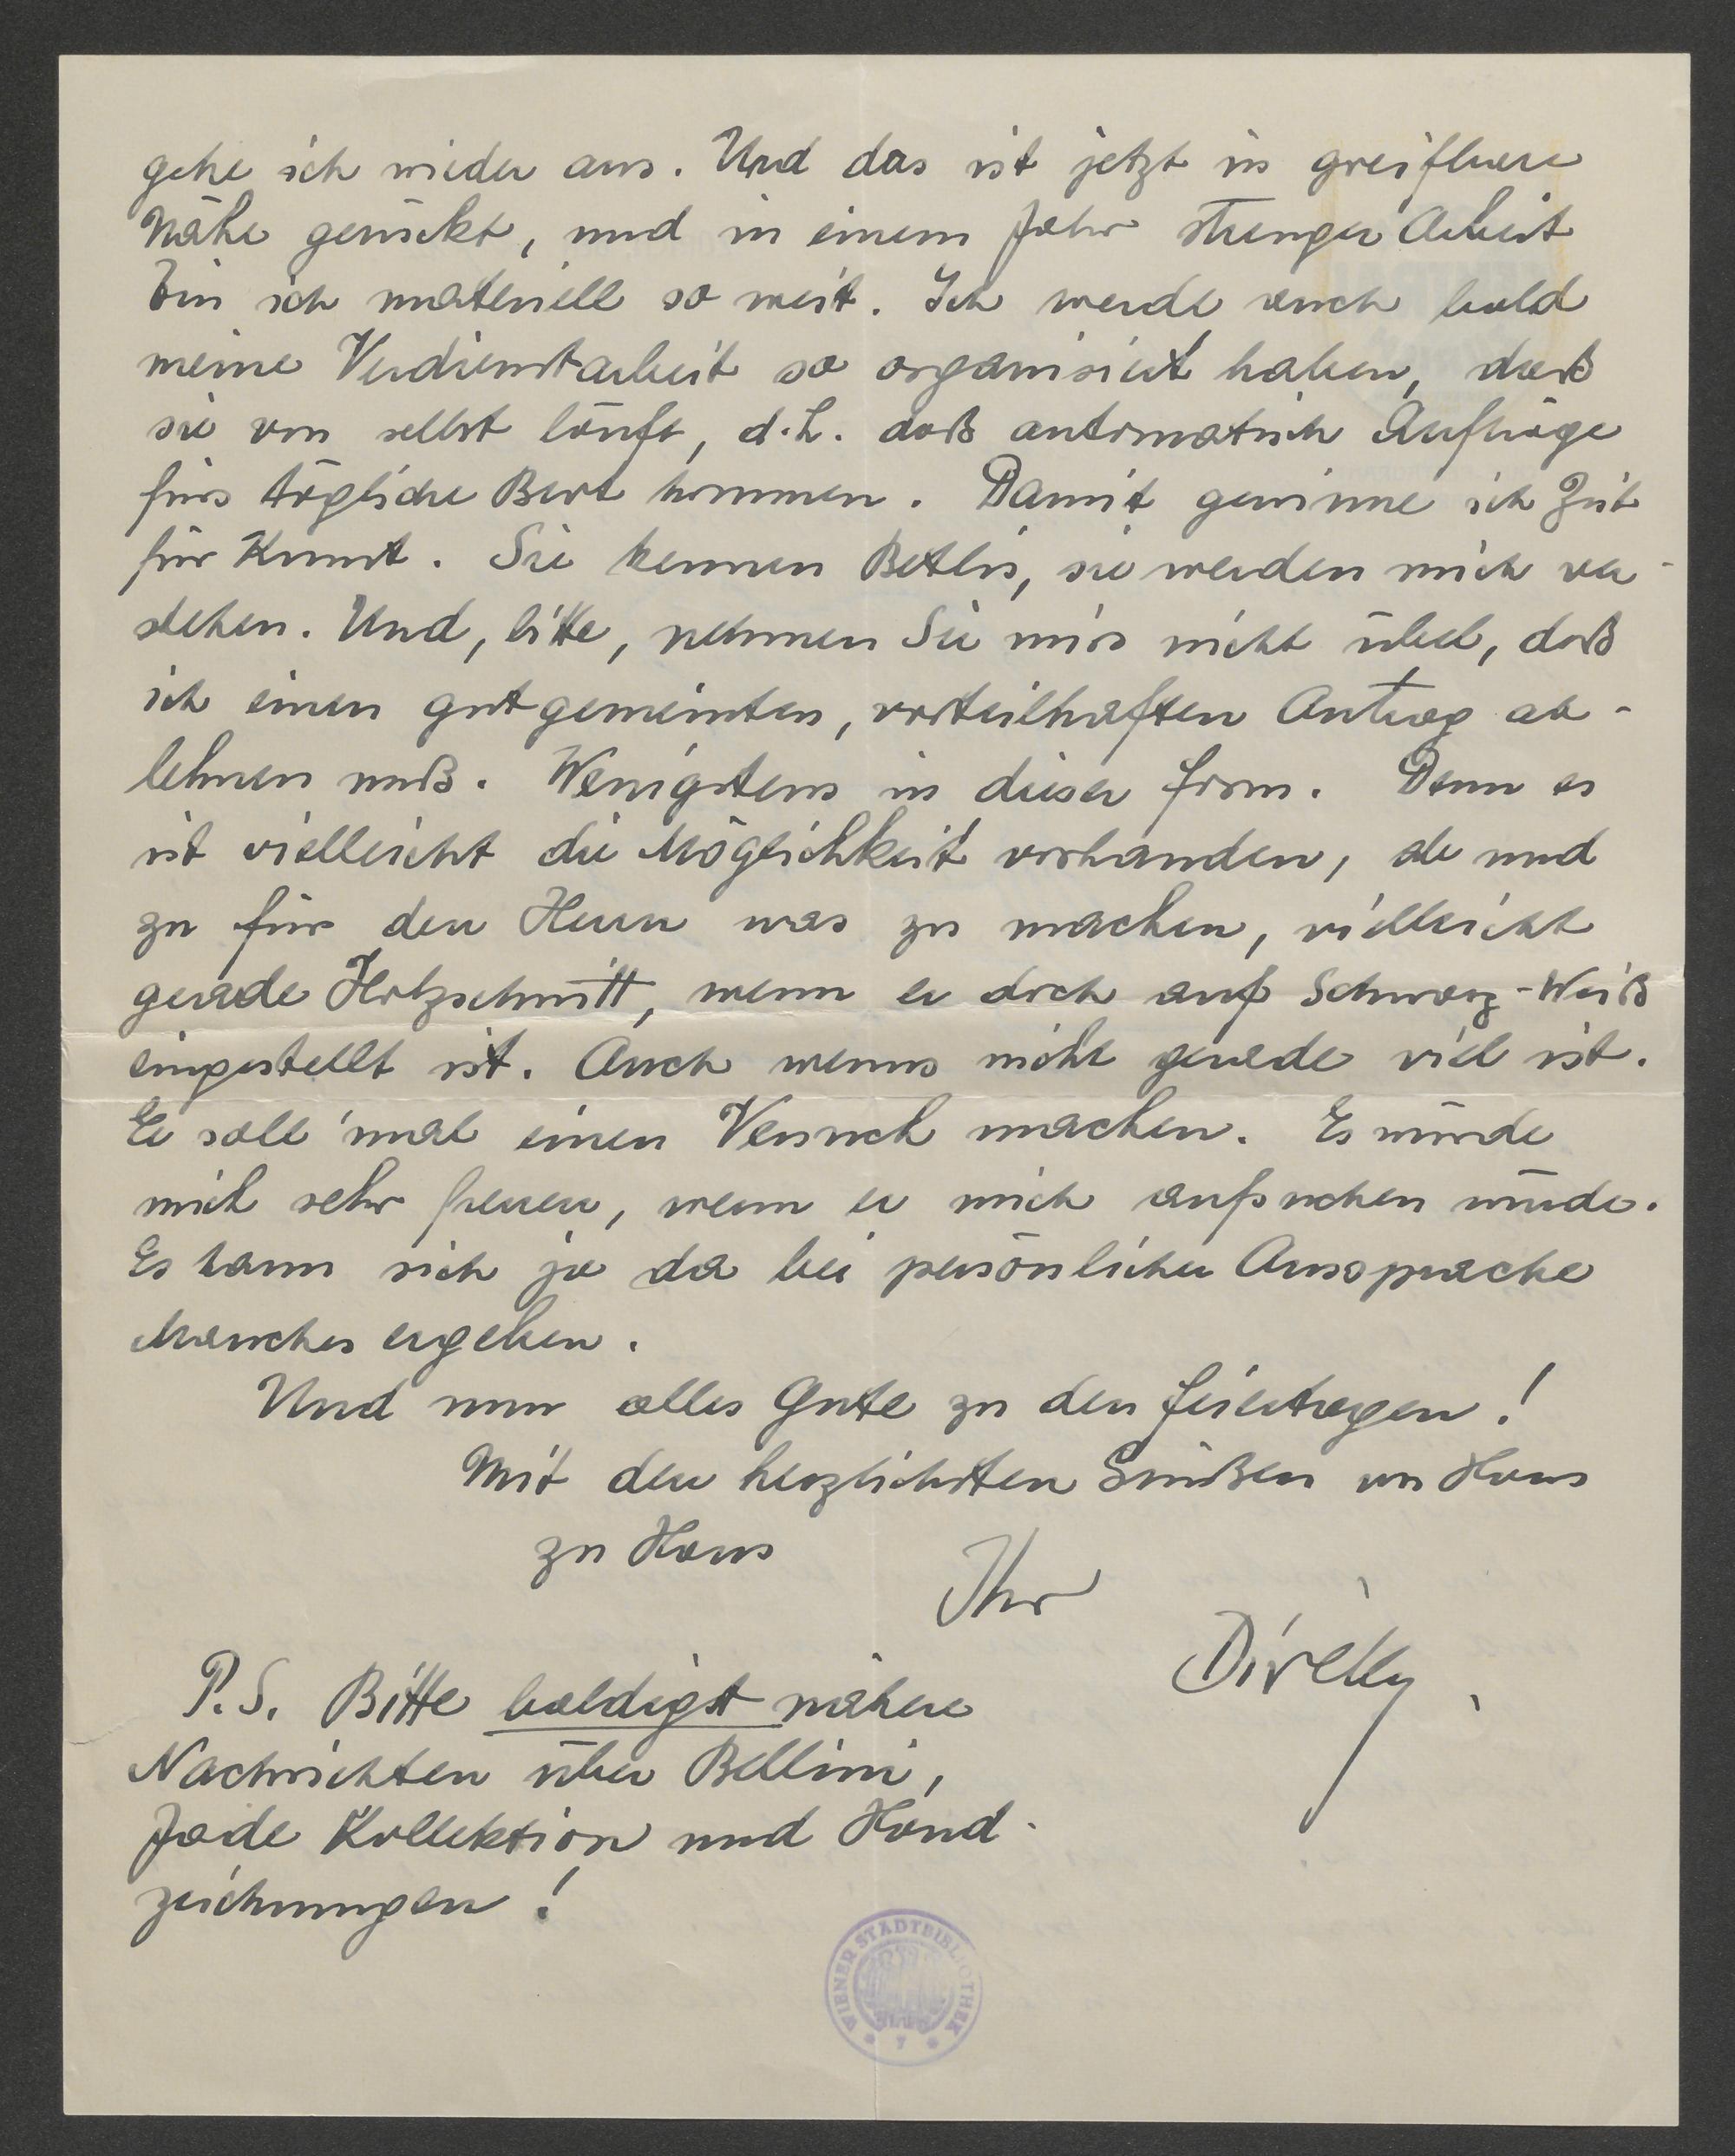 gehe ich wieder aus. Und das ist jetzt in greifbare
Nähe gerückt, und in einem Jahr strenger Arbeit
bin ich materiell so weit. Ich werde auch bald
meine Verdienstarbeit so organisiert haben, daß
sie von selbst läuft, d.h. daß automatisch Aufträge
fürs tägliche Brot kommen. Damit gewinne ich Zeit
für Kunst. Sie kennen Betlis, sie werden mich ver-
stehen. Und, bitte, nehmen Sie mirs nicht übel, daß
ich einen gutgemeinten, vorteilhaften Antrag ab-
lehnen muß. Wenigstens in dieser Form. Denn es
ist vielleicht die Möglichkeit vorhanden, ab und
zu für den Herrn was zu machen, vielleicht
gerade Holzschnitt, wenn er doch auf Schwarz-Weiß
eingestellt ist. Auch wenns nicht gerade viel ist.
Er soll 'mal einen Versuch machen. Es würde
mich sehr freuen, wenn er mich aufsuchen würde.
Es kann sich ja da bei persönlicher Aussprache
Manches ergeben.
Und nun alles Gute zu den Feiertagen!
Mit den herzlichsten Grüßen von Haus
zu Haus
Ihr
P.S. Bitte baldigst nähere
Nachrichten über Bellini,
Jade Kollektion und Hand-
zeichnungen!
WIENER STADTBIBLIOTHEK